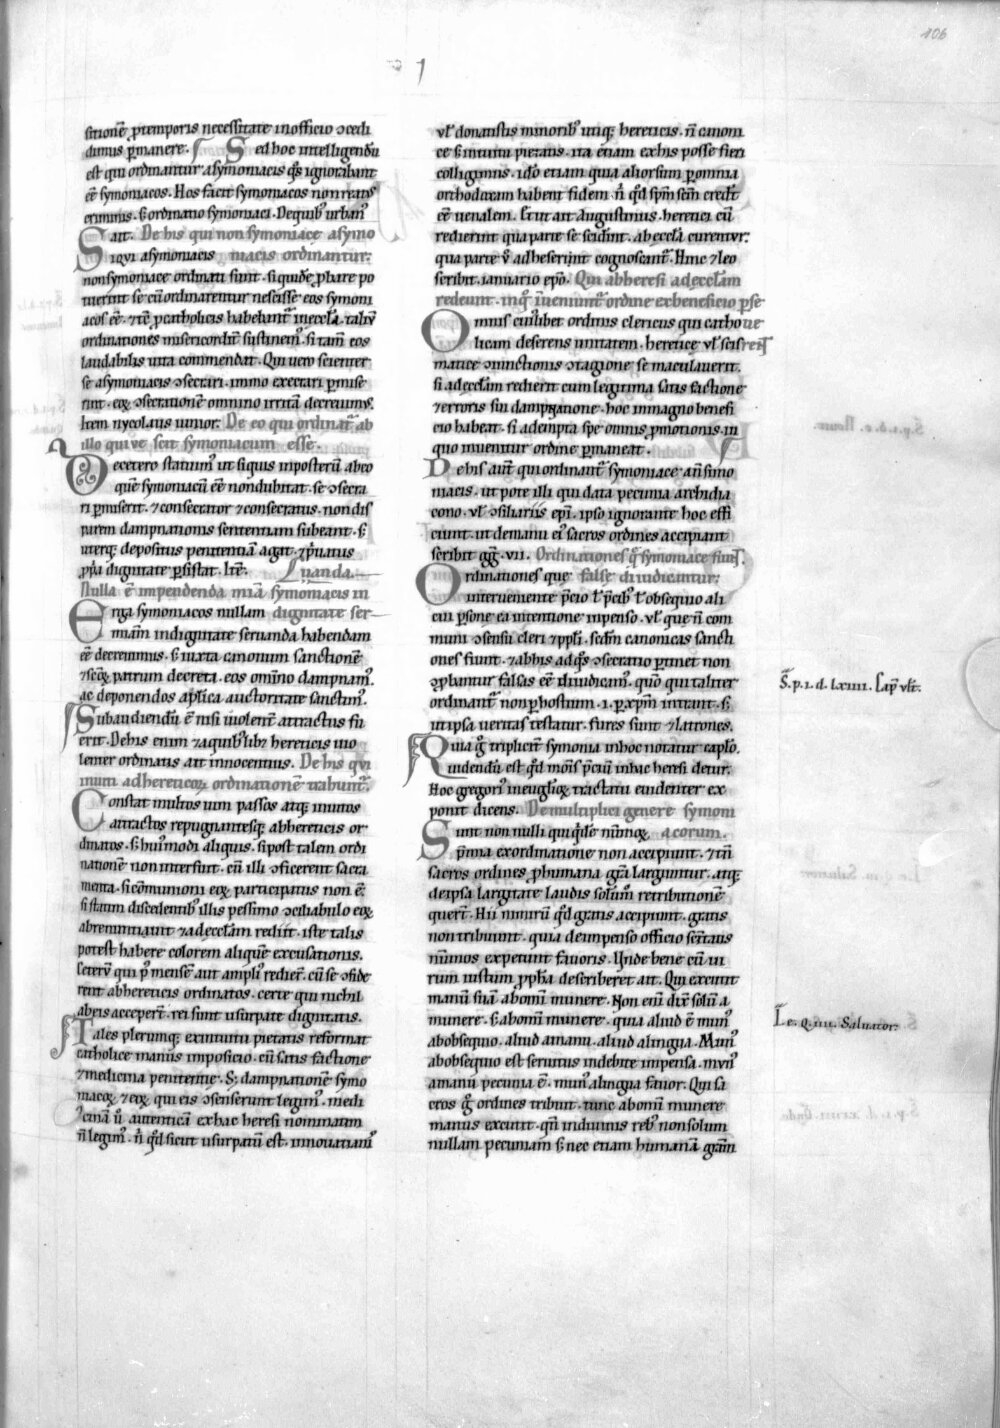 106
I
sitionē ꝓtemporis necessitate inofficio ↄcedi
dimus ꝑmanere. Sed hoc intelligendū
est qui ordinantur asymoniacis q̄s ignorabant
eē symoniacos. Hos facit symoniacos non reatꝰ
criminis. s; ordinatio symoniaci. Dequibꝰ urbanꝰ
ait. De his qui non symoniace asymo
Siqui asymoniacis niacis ordinantur.
nonsymoniace ordinati sunt. siquidē ꝓbare po
tuerint se cū ordinarentur nescisse eos symoni
acos eē. ⁊tc̄ ꝓcatholicis habebant̄ inęccła. taliū
ordinationes misericordit̄ sustinemꝰ. si tam̄ eos
laudabilis uita commendat. Qui uero scienter
se asymoniacis ↄsecrari. immo execrari ꝑmise
rint. eoꝝ ↄsecrationē omnino irritā decreuimꝰ.
Item nycolaus iunior. De eo qui ordinat̄ ab
illo quē ue scit symoniacum esse.
Decetero statuimꝰ ut siquis inposterū abeo
quē symoniacū eē nondubitat. se ↄsecra
ri ꝑmiserit. ⁊consecrator ⁊consecratus. non dis
parem dampnationis sententiam subeant. s;
uterq; depositus penitentiā agat ⁊p̄uatus
ꝓp̄a dignitate ꝑsistat. Itē.
Nulla ē impendenda mīa symoniacis in
Erga symoniacos nullam dignitate ser
miām indignitate seruanda habendam uanda.
eē decreuimus. s; iuxta canonum sanctionē
⁊scōꝝ patrum decreta. eos om̄ino dampnamꝰ.
ac deponendos aplica auctoritate sanctimꝰ.
Subaudiendū ē nisi uiolent̄ attractus fu
erit. Dehis enim ⁊aquibꝰlibꝫ hereticis uio
lenter ordinatis ait innocentius. De his qui
inuiti adhereticoꝝ ordinationē trahunt̄.
Constat multos uim passos atq; inuitos
attractos repugnantesq; abhereticis or
dinatos. s; huiꝰmodi aliquis. si post talem ordi
nationē non interfuit. cū illi ↄficerent sacra
menta. si cōmunioni eoꝝ participatus non ē.
si statim discedentibꝰ illis pessimo ↄciliabulo eoꝝ
abrenuntiauit ⁊adęccłam rediit. iste talis
potest habere colorem aliquē excusationis.
Ceterū qui pꝰ mensē aut ampliꝰ redier̄. cū se ↄside
rent abhereticis ordinatos. certe qui nichil
abeis acceper̄t. rei sunt usurpate dignitatis.
Tales plerumq; exintuitu pietatis reformat
catholice manus imposicio. cū satis factione
⁊medicina penitentie. S; dampnationē symo
niacoꝝ ⁊eoꝝ qui eis ↄsenserunt legimꝰ. medi
cinā u̾ autenticā exhac heresi nominatim
n̄ legimꝰ. n̄ qđ sicut usurpatū est. innouatianꝰ
uł donatistis minoribꝰ utiq; hereticis. n̄ canoni
ce s; intuitu pietatis. ita etiam exhis posse fieri
colligimus. idō etiam quia aliorsum ꝑomnia
orthodoxam habent fidem. n̄ qđ sp̄m sc̄m credt̄
eē uenalem. Et ut ait augustinus. heretici cū
redierint qua parte se scidit̄. abęccła. curentur.
qua parte u̾ adheserint cognoscant̄. Hinc ⁊leo
scribit. ianuario ep̄o. Qui abheresi adęccłam
redeunt. inq̊ inueniunt̄ ordine exbeneficio ꝑse
Omnis cuiꝰlibet ordinis clericus qui catho uerent
licam deserens unitatem. heretice uł scis
matice ↄiunctionis ↄtagione se maculauerit.
si adęccłam redierit cum legitima satis factione
⁊erroris sui dampnatione. hoc inmagno benefi
cio habeat. si adempta spe omnis ꝓmotionis. in
quo inuenitur ordine ꝑmaneat.
Dehis aut̄ qui ordinant̄ symoniace an̄simo
niacis. ut pote illi qui data pecunia archidia
cono. uł ↄsiliariis ep̄i. ipso ignorante hoc effi
ciunt. ut demanu eiꝰ sacros ordines accipiant
scribit gg̅. vii. Ordinationes q̄ symoniace fiunt.
Ordinationes que falsę diiudicantur.
interueniente p̄cio ł p̄cibꝰ ł obsequio ali
cui ꝑsone ea intentione inpenso. uł que n̄ com
muni ↄsensu cleri ⁊ppłi. scdm̄ canonicas sancti
ones fiunt. ⁊abhis adq̊s ↄsecratio ꝑtinet non
ↄꝓbantur falsas eē diiudicamꝰ. quō qui taliter
ordinant̄ non ꝑhostium .i. ꝑxp̄m intrant. s;
ut ipsa ueritas testatur. fures sunt ⁊latrones.
Quia g̊ triplicit̄ symonia inhoc notatur capłō.
uidendū est qđ mōis p̄ciū inhac heresi detur.
Hoc gregoriꝰ ineuglioꝝ tractatu euidenter ex
ponit dicens. De multiplici genere symoni
Sunt non nulli qui q̄dē nūmoꝝ acorum.
p̄mia exordinatione non accipiunt. ⁊tn̄
sacros ordines ꝓhumana gr̄a largiuntur. atq;
deipsa largitate laudis solūm retributionē
quer̄t. Hii nimirū qđ gratis acceperunt. gratis
non tribuunt. quia deinpenso officio sc̄itatis
nūmos expetunt fauoris. Vnde bene cū ui
rum iustum ꝓpha describeret ait. Qui excutit
manū suā abomī munere. Non enī dix̄ solū a
munere. s; abomī munere. quia aliud ē munꝰ
abobsequio. aliud amanu. aliud alingua. Munꝰ
abobsequio est seruitus indebite impensa. munꝰ
amanu pecunia ē. munꝰ alingua fauor. Qui sa
cros g̊ ordines tribuit. tunc abomī munere
manus excutit. qn̄ indiuinis rebꝰ nonsolum
nullam pecuniam s; nec etiam humanā gr̄am
S. p. i. d. lxiiii. Cap̄ vlt̄.
I. e. q. iii. Saluator.